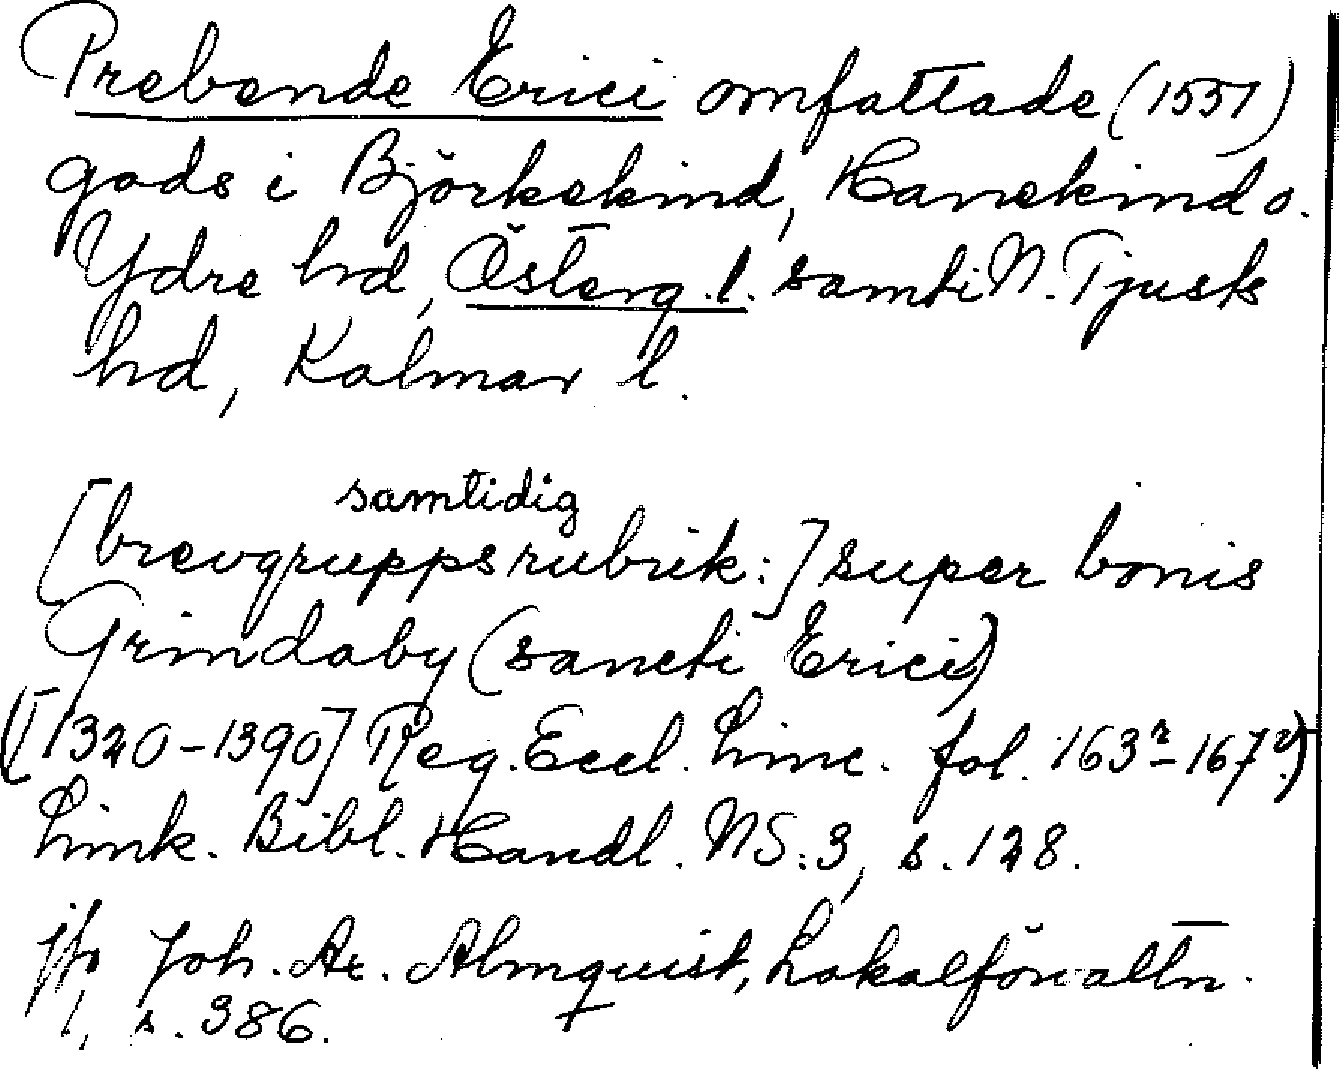 Prebende Erici omfattade (1551)
gods i Björkekind, Hanekind o.
Ydre hd, Österg.l. samt i N. Tjusts
hd, Kalmar l.
samtidig
[brevgruppsrubrik:] super bonis
Grindaby (sancti Erici)
([1320-1390] Reg. Eccl. Linc. fol. 163r-167r)
Link. Bibl. Handl. NS:3, s. 128.
jfr Joh. Ax. Almquist, Lokalförvaltn.
1, s. 386.